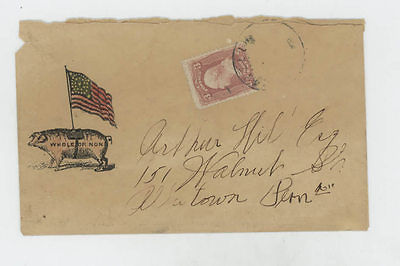 WHOLE OR NONE
Arthur Esq
151 Walnut St
town Penna